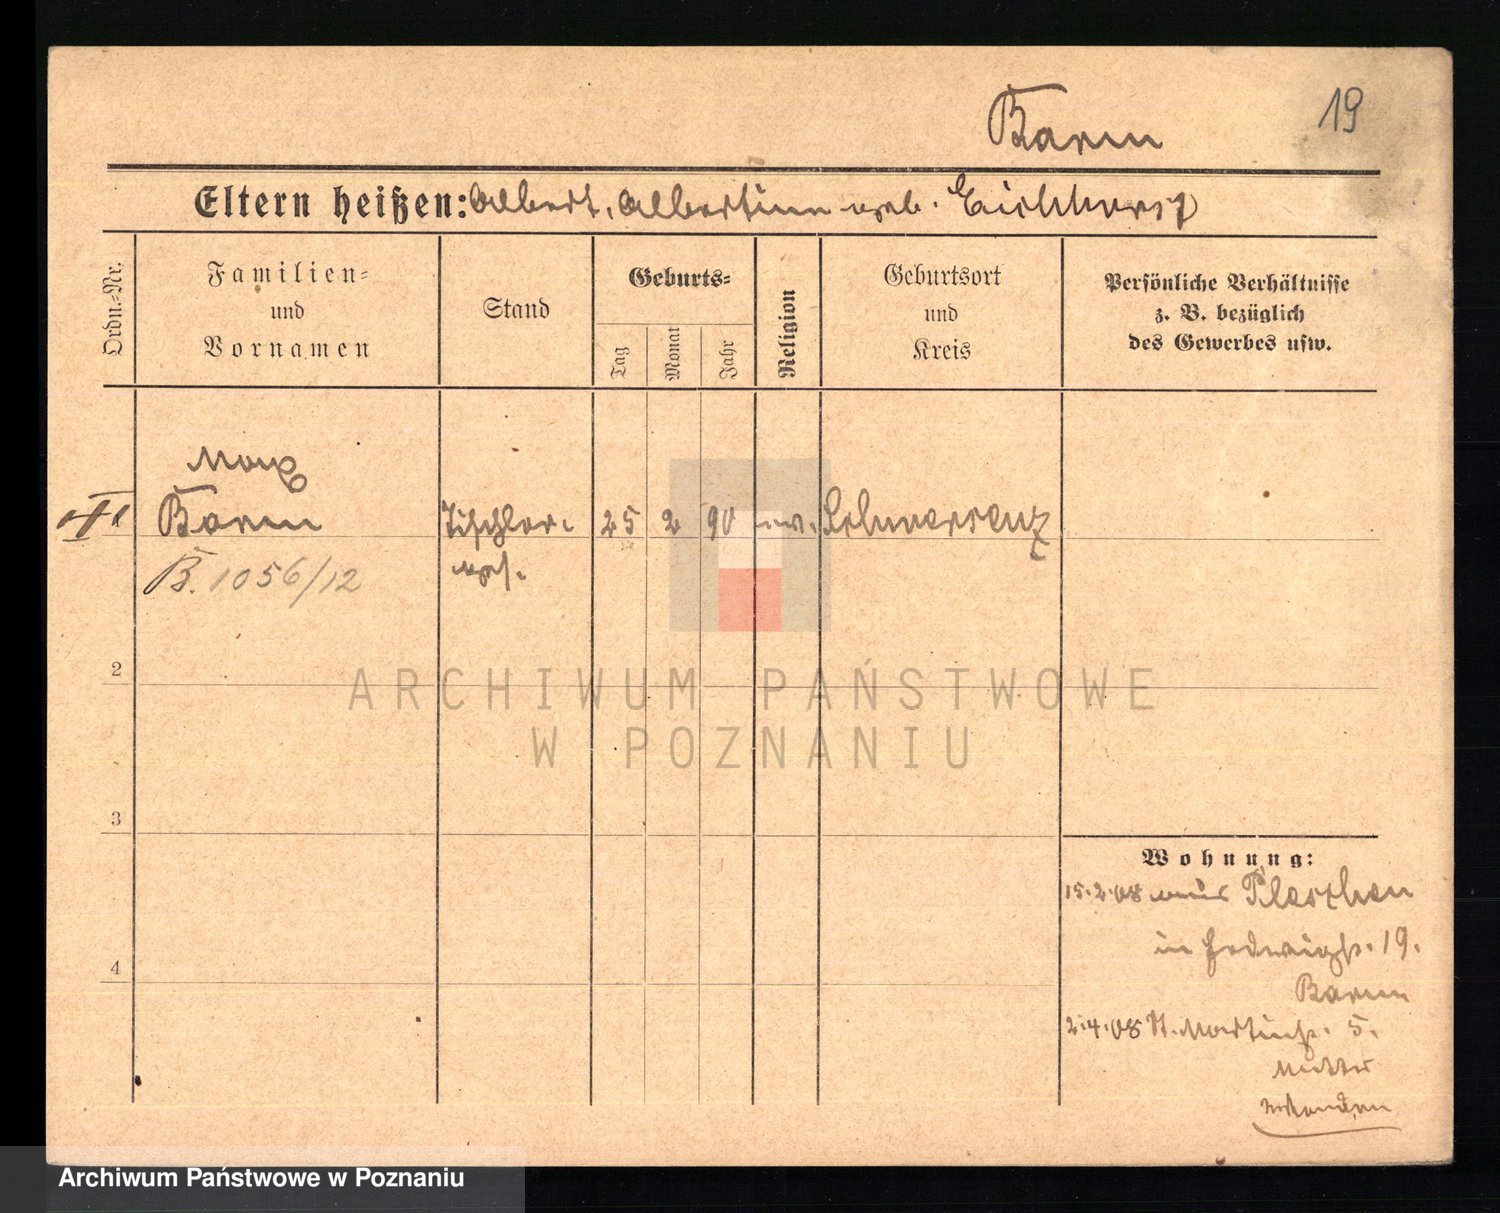 19
Barm
Eltern heißen: Albert, Albertine geb. Eichhorst
Ordn.=Nr.
Familien=
und
Vornamen
Stand
Geburts=
Tag
Monat
Jahr
Religion
Geburtsort
und
Kreis
Persönliche Verhältnisse
z. B. bezüglich
des Gewerbes usw.
Max
Barm
Tischler-
25 2 90 ev. Schwersenz
B. 1056/12
ges.
2
3
4
ARCHIWUM PAŃSTWOWE
W POZNANIU
Wohnung:
15.2.08 aus Pleschen
in Hedwigstr. 19.
Barm
2.4.08 St. Martinstr. 5.
Mutter
Archiwum Państwowe w Poznaniu